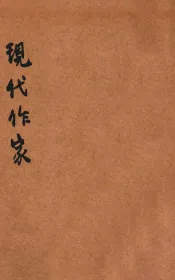 現代作家